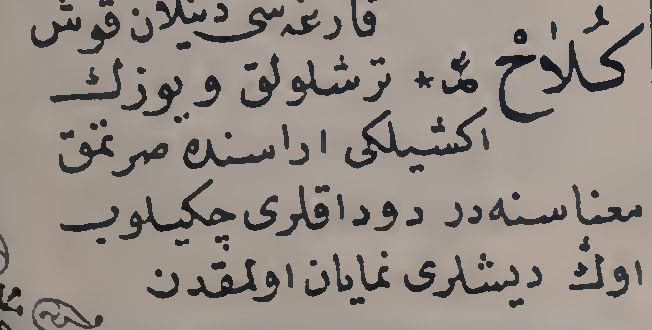 قارغه‌سی دینلان قوش
كُلَاحْ مّ * ترشلولق و یوزك
اكشیلكی اراسنده صرتمق
معناسنه‌در دوداقلری چكیلوب
اوڭ دیشلری نمایان اولمقدن